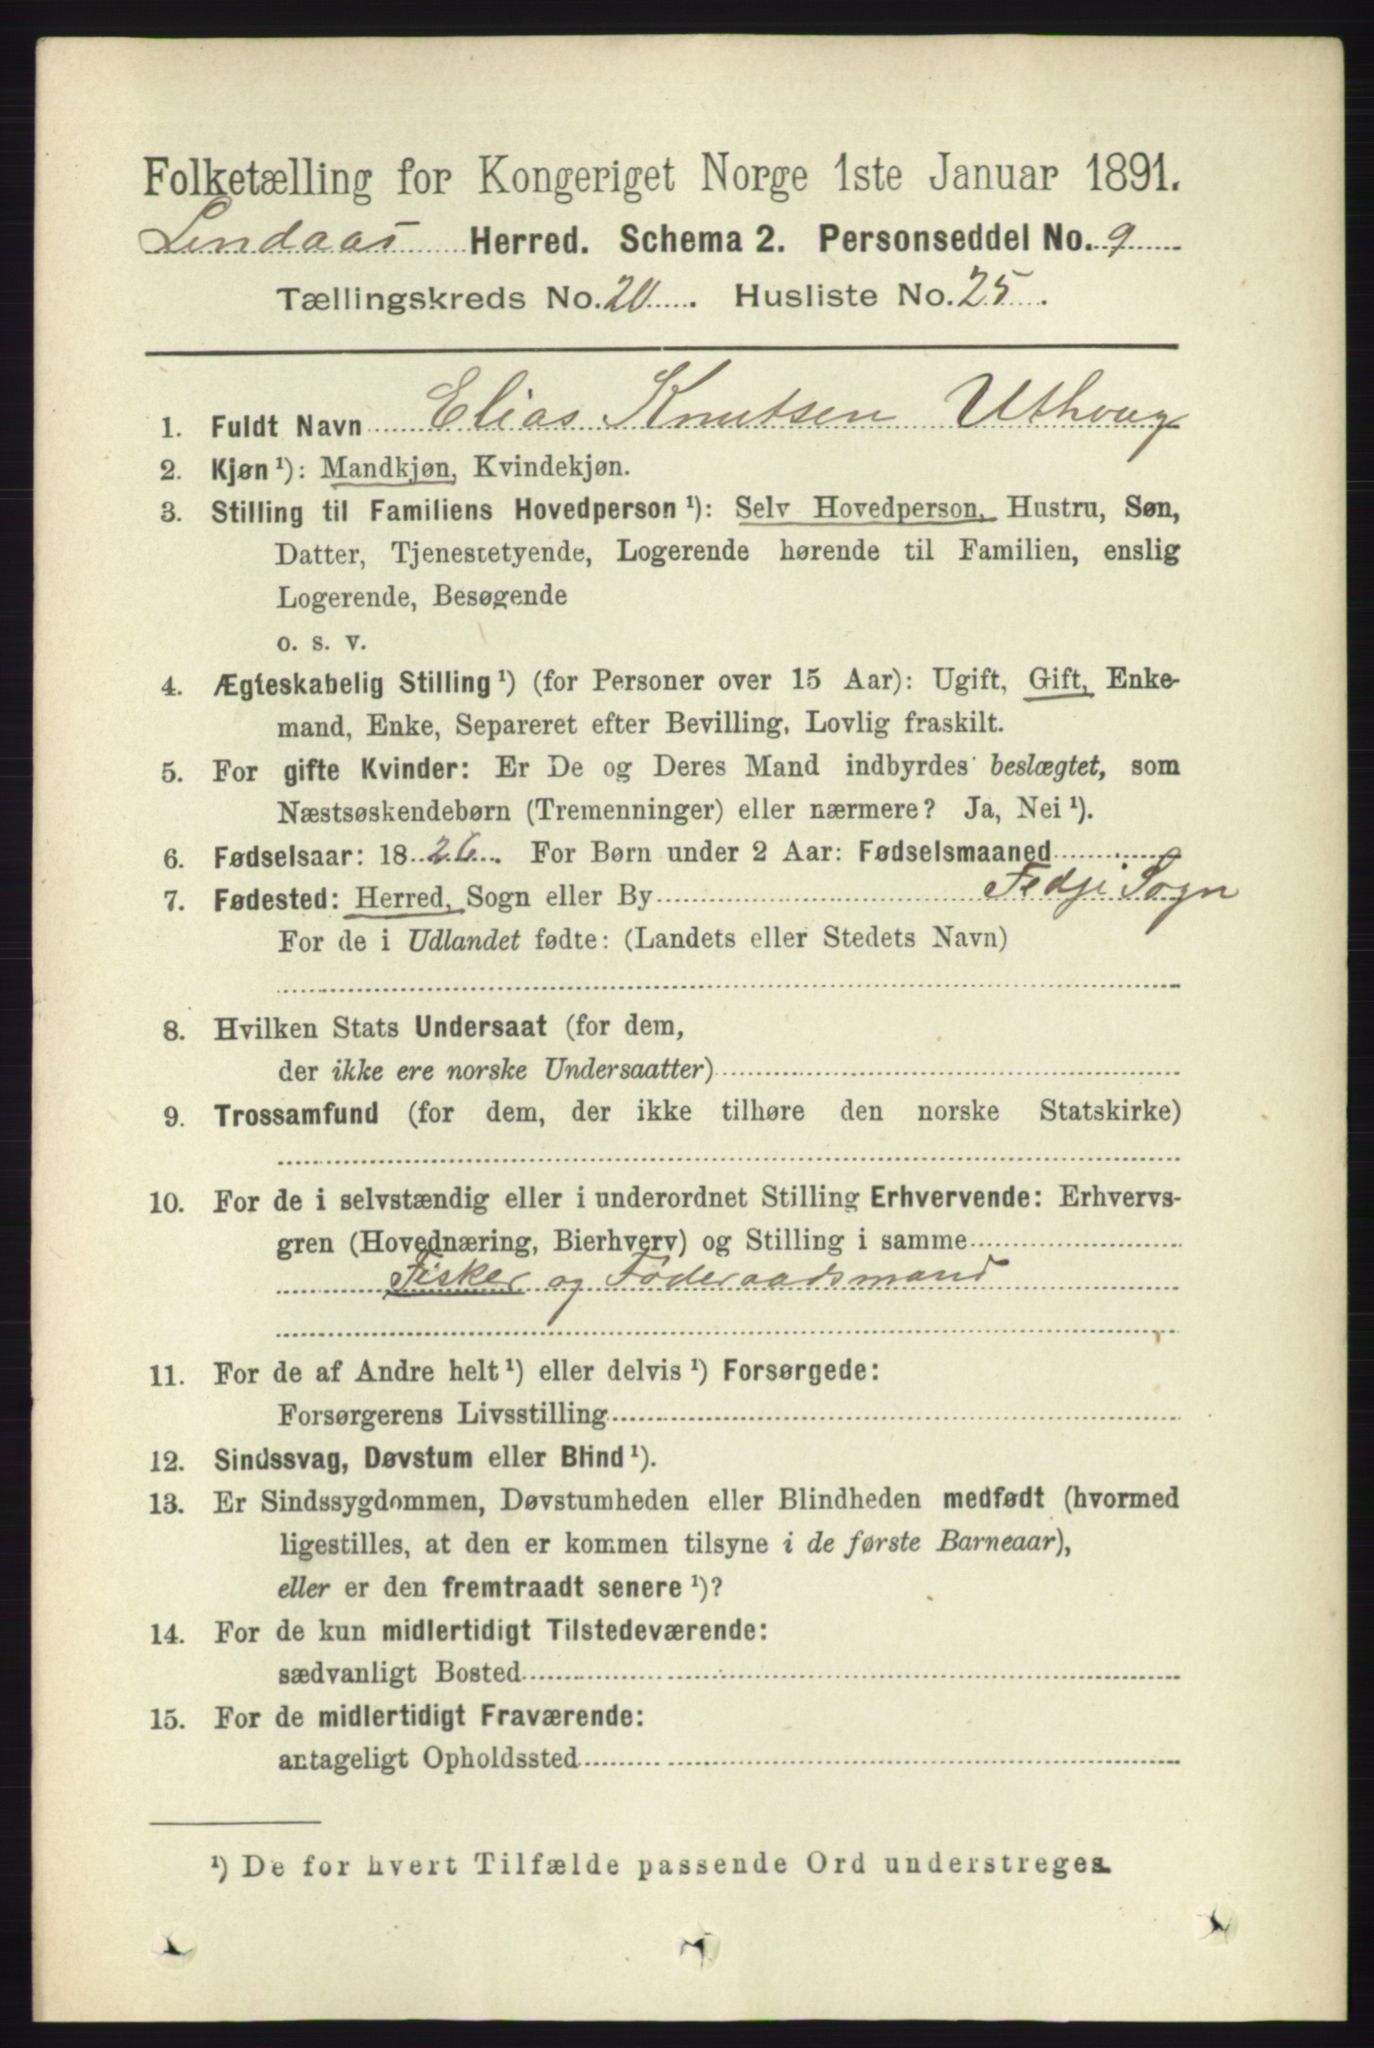 Folketælling for Kongeriget Norge 1ste Januar 1891.
Lindaas Herred. Schema 2. Personseddel No. 9
Tællingskreds No. 20. Husliste No. 25.
1. Fuldt Navn Elias Knutsen Uthoug
2. Kjøn¹): Mandkjøn, Kvindekjøn.
3. Stilling til Familiens Hovedperson¹): Selv Hovedperson, Hustru, Søn,
Datter, Tjenestetyende, Logerende hørende til Familien, enslig
Logerende, Besøgende
o. s. v.
4. Ægteskabelig Stilling¹) (for Personer over 15 Aar): Ugift, Gift, Enke-
mand, Enke, Separeret efter Bevilling, Lovlig fraskilt.
5. For gifte Kvinder: Er De og Deres Mand indbyrdes beslægtet, som
Næstsøskendebørn (Tremenninger) eller nærmere? Ja, Nei¹).
6. Fødselsaar: 1826. For Børn under 2 Aar: Fødselsmaaned
7. Fødested: Herred, Sogn eller By Fedje Sogn
For de i Udlandet fødte: (Landets eller Stedets Navn)
8. Hvilken Stats Undersaat (for dem,
der ikke ere norske Undersaatter)
9. Trossamfund (for dem, der ikke tilhøre den norske Statskirke)
10. For de i selvstændig eller i underordnet Stilling Erhvervende: Erhvervs-
gren (Hovednæring, Bierhverv) og Stilling i samme
Fisker og Føderaadsmand
11. For de af Andre helt¹) eller delvis¹) Forsørgede:
Forsørgerens Livsstilling
12. Sindssvag, Døvstum eller Blind¹).
13. Er Sindssygdommen, Døvstumheden eller Blindheden medfødt (hvormed
ligestilles, at den er kommen tilsyne i de første Barneaar),
eller er den fremtraadt senere¹)?
14. For de kun midlertidigt Tilstedeværende:
sædvanligt Bosted
15. For de midlertidigt Fraværende:
antageligt Opholdssted
¹) De for hvert Tilfælde passende Ord understreges.